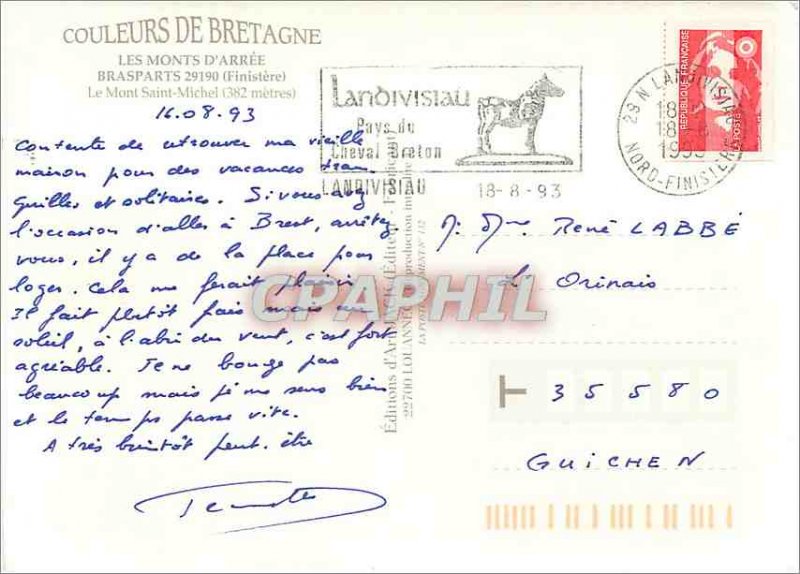 COULEURS DE BRETAGNE
LES MONTS D'ARRÉE
BRASPARTS 29190 (Finistère)
Le Mont Saint-Michel (382 mètres)
16.08.93
Contente de retrouver ma vieille
maison pour des vacances tran
quilles et solitaires. Si vous avez
l'occasion d'aller à Brest, arrêtez
vous, il y a de la place pour
loger. Cela me ferait plaisir
Il fait plutôt frais mais au
soleil, à l'abri du vent, c'est fort
agréable. Je ne bouge pas
beaucoup mais je me sens bien
et le temps passe vite.
A très bientôt peut-être
Landivisiau
Pays du
Cheval Breton
LANDIVISIAU 18-8-93
29N LANDIVISIAU
18
1993
NORD-FINISTERE
REPUBLIQUE FRANÇAISE
LA POSTE
M. Mme René LABBÉ
L'Orinais
T 35580
GUICHEN
Éditions d'Art JACK Éditeur
22700 LOUANNEC reproduction interdite
CPAPHIL